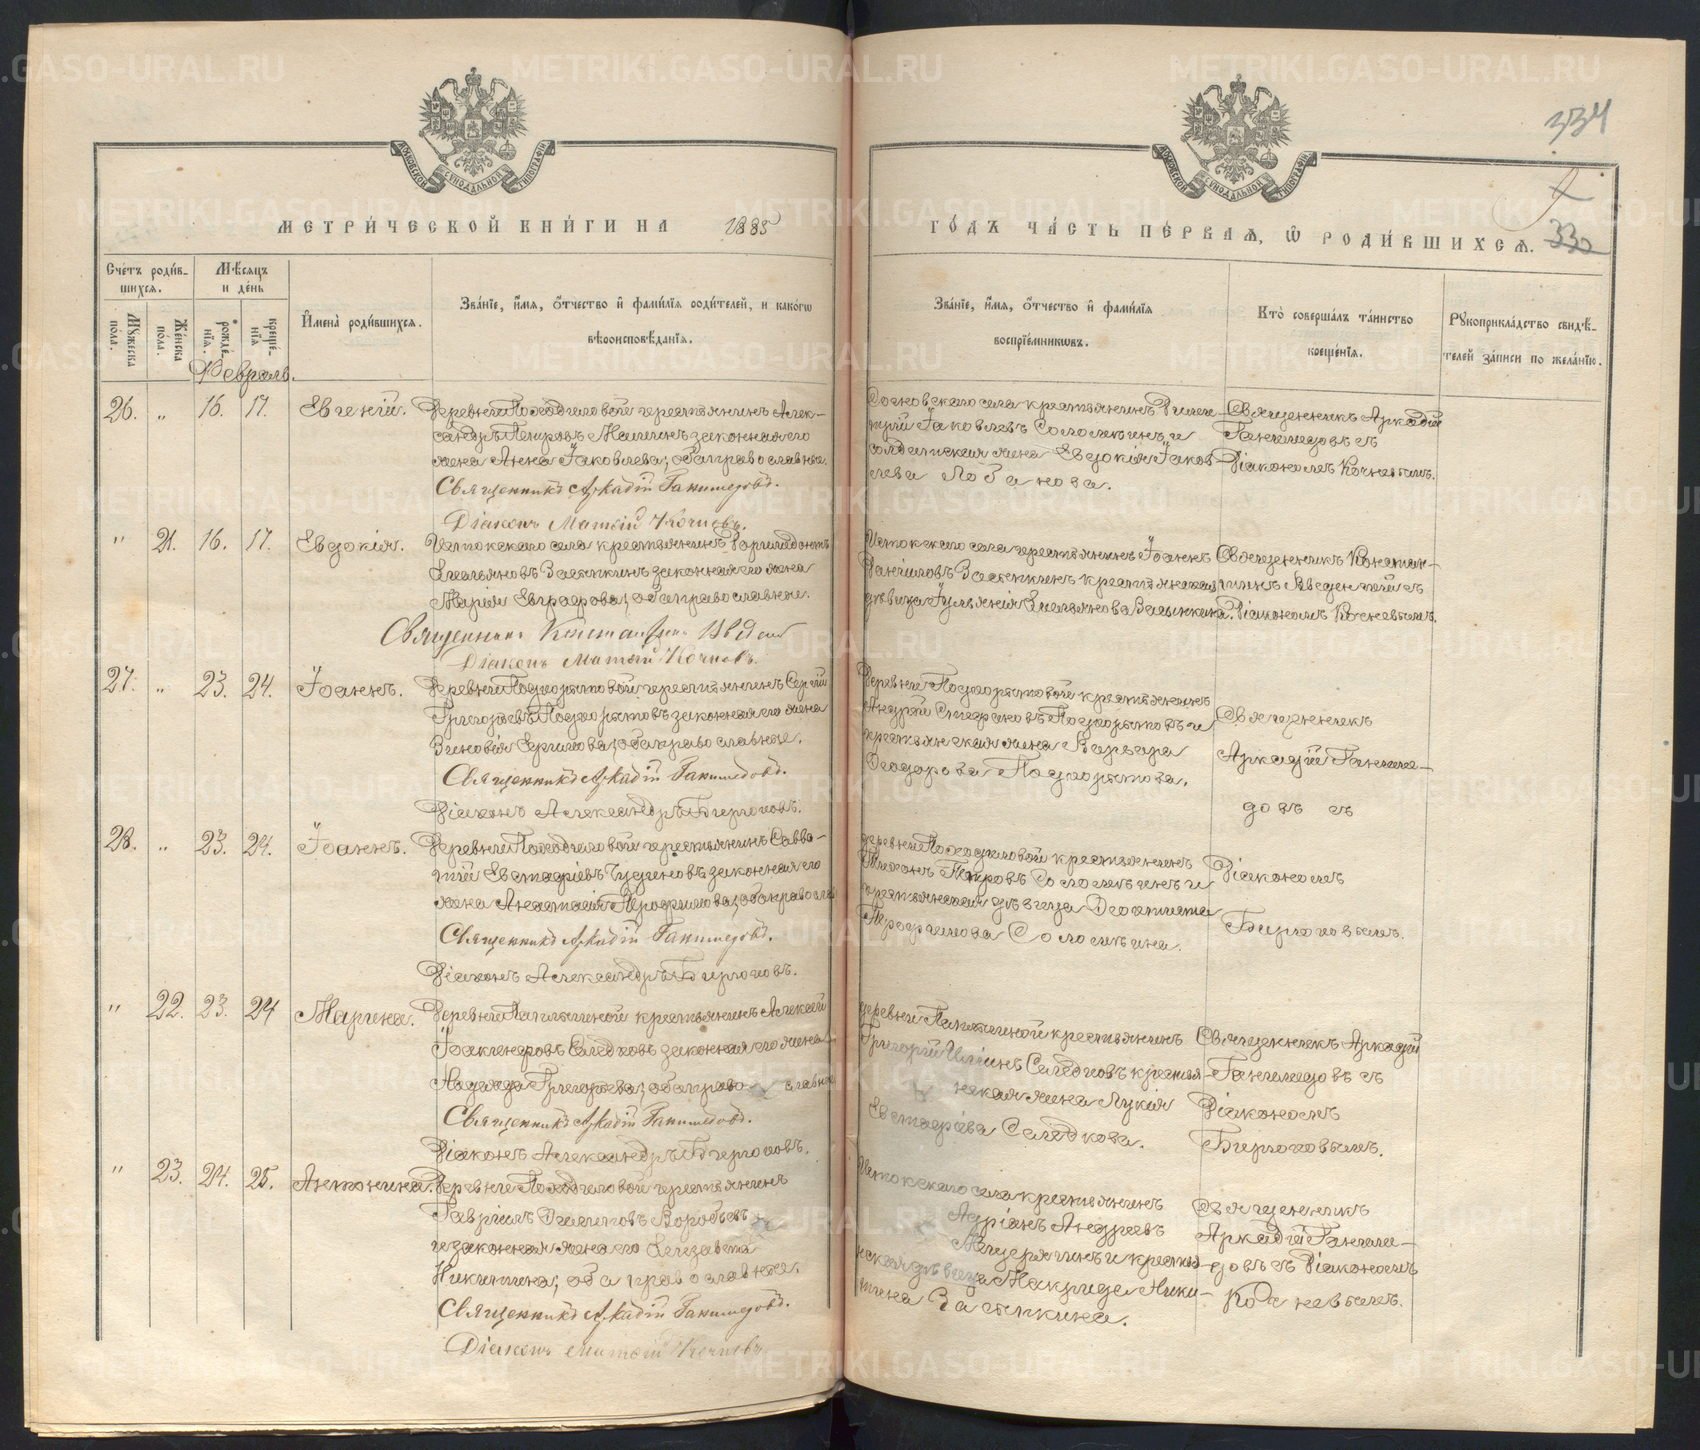 334
МЕТРИ́ЧЕСКОЙ КНИ́ГИ НА 1885 ГО́ДЪ ЧА́СТЬ ПЕ́РВАЯ, Ѡ РОДИ́ВШИХСЯ.
330
Сче́тъ роди́в-
шихся.
Мѣ́сяцъ
и де́нь
Мꙋ́жеска
по́ла.
Же́нска
пола.
рожде́-
нїя.
креще́-
нїя
И҆мена̀ роди́вшихся.
Зва́нїе, и҆́мя, ѻ҆́тчество и҆ фами́лїя роди́телей, и како́гѡ
вѣроисповѣ́данїя.
Зва́нїе, и҆́мя, ѻ҆́тчество и҆ фами́лїя
воспрїе́мникѡвъ.
Кто̀ соверша́лъ та́инство
креще́нїя.
Рꙋкоприкла́дство свидѣ́-
телей за́писи по жела́нїю.
Февраль.
26. „ 16. 17. Евгеній.
Деревни Походиловой крестьянинъ Алек-
сандръ Петровъ законная его
жена Анна Іаковлева, оба православные.
Священникъ Аркадій Ганимедовъ.
Діаконъ Матѳій Кочневъ.
села крестьянинъ
Іаковлевъ и
солдатская жена Евдокія Іаков-
лева Лобанова.
Священникъ Аркадій
Ганимедовъ съ
Діакономъ Кочневымъ.
„ 21. 16. 17. Евдокія.
Истокскаго села крестьянинъ
Емельяновъ Засыпкинъ законная его жена
Марія Евграфова, оба православные.
Священникъ Константинъ Введен
Діаконъ Матѳій Кочневъ.
Истокскаго села крестьянинъ Іоаннъ
Даниловъ Засыпкинъ крестьянская
дѣвица Іуліанія Емельянова Засыпкина.
Священникъ Констан-
тинъ Введенскій съ
Діакономъ Кочневымъ.
27. „ 23. 24. Іоаннъ.
Деревни крестьянинъ Сергій
Григорьевъ законная его жена
Зиновія Ермилова, оба православные.
Священникъ Аркадій Ганимедовъ.
Діаконъ Александръ Бирюковъ.
Деревни крестьянинъ
Андрей Стефановъ и
крестьянская жена Варвара
Ѳеодорова
Священникъ
Аркадій Ганиме-
довъ съ
28. „ 23. 24. Іоаннъ.
Деревни Походиловой крестьянинъ Савва-
тій Евстафіевъ Чудиновъ законная его
жена Анастасія Трофимова, оба православ
Священникъ Аркадій Ганимедовъ.
Діаконъ Александръ Бирюковъ.
деревни Походиловой крестьянинъ
Петровъ и
крестьянская дѣвица Ѳеоктиста
Трофимова
Діакономъ
Бирюковымъ.
„ 22. 23. 24 Марина.
Деревни крестьянинъ Алексѣй
Селедковъ законная его жена
Надежда Григорьева, оба православные
Священникъ Аркадій Ганимедовъ.
Діаконъ Александръ Бирюковъ.
деревни крестьянинъ
Григорій Селедковъ крестья-
нская жена Лукія
Евстафіева Селедкова.
Священникъ Аркадій
Ганимедовъ съ
Діакономъ
Бирюковымъ.
„ 23. 24. 25. Антонина.
Деревни Походиловой крестьянинъ
Гавріилъ Филиповъ Воробьевъ
и законная жена его Елизавета
Никитина, оба православные.
Священникъ Аркадій Ганимедовъ.
Діаконъ Матѳій Кочневъ
Истокскаго села крестьянинъ
Адріанъ Андреевъ
Мещерягинъ и крестья-
нская дѣвица Макрида Ники-
тина Засыпкина.
Священникъ
Аркадій Ганиме-
довъ съ Діакономъ
Кочневымъ.
METRIKI.GASO-URAL.RU